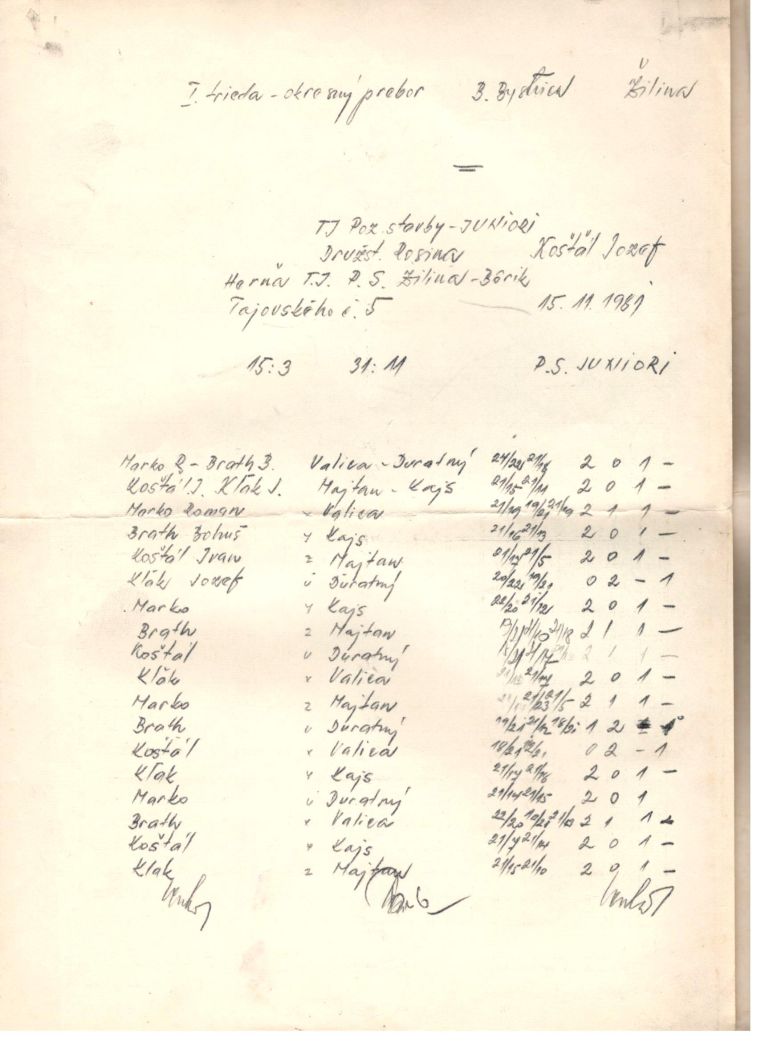 I. trieda - okresný prebor B. Bystrica Žilina
TJ Poz. stavby - JUNIORI
Družst. Rosina Košťál Jozef
Herňa T.J. P. S. Žilina - Bôrik
Tajovského č. 5 15. 11. 1981
15:3 31:11 P.S. JUNIORI
Marko R - Brath B. Valica - Duratný 24/22 21/18 2 0 1 -
Košťál I. Kľak J. Majtan - Kajs 21/15 21/11 2 0 1 -
Marko Roman x Valica 21/19 19/21 21/19 2 1 1 -
Brath Bohuš y Kajs 21/16 21/13 2 0 1 -
Košťál Ivan z Majtan 21/5 2 0 1 -
Kľák Jozef u Duratný 20/22 19/21 0 2 - 1
Marko y Kajs 22/20 21/12 2 0 1 -
Brath z Majtan 2 1 1 -
Košťál u Duratný 2 1 1 -
Kľak x Valica 2 0 1 -
Marko z Majtan 21/5 2 1 1 -
Brath u Duratný 19/21 21/12 18/21 1 2 - 1
Košťál x Valica 18/21 0 2 - 1
Kľak y Kajs 21/17 21/18 2 0 1 -
Marko u Duratný 21/14 21/15 2 0 1
Brath x Valica 22/20 2 1 1 -
Košťál y Kajs 21/7 21/14 2 0 1 -
Klak z Majtan 21/15 21/10 2 0 1 -